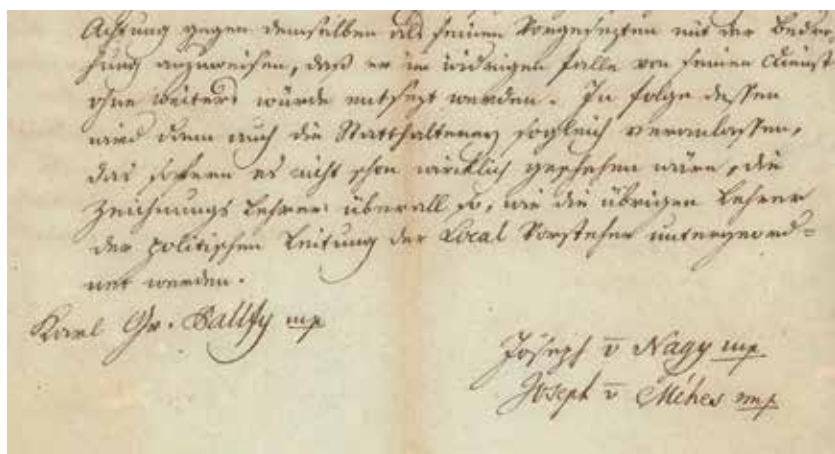 Achtung gegen demselben als seinen Vorgesezten mit der Bedro-
hung anzuweisen, daß er im widrigen Falle von seinen Dienst
ohne weiters würde entsezt werden. In folge dessen
wird dann auch die Statthalterey sogleich veranlassen,
das sofern es nicht schon wirklich geschehen wäre, die
Zeichnungs Lehrer überall so, wie die übrigen Lehrer
der politischen Leitung der Local Vorsteher untergeord=
net werden.
Karl Gr. Pallfy mp
Joseph v Nagy mp.
Joseph v Méhes mp